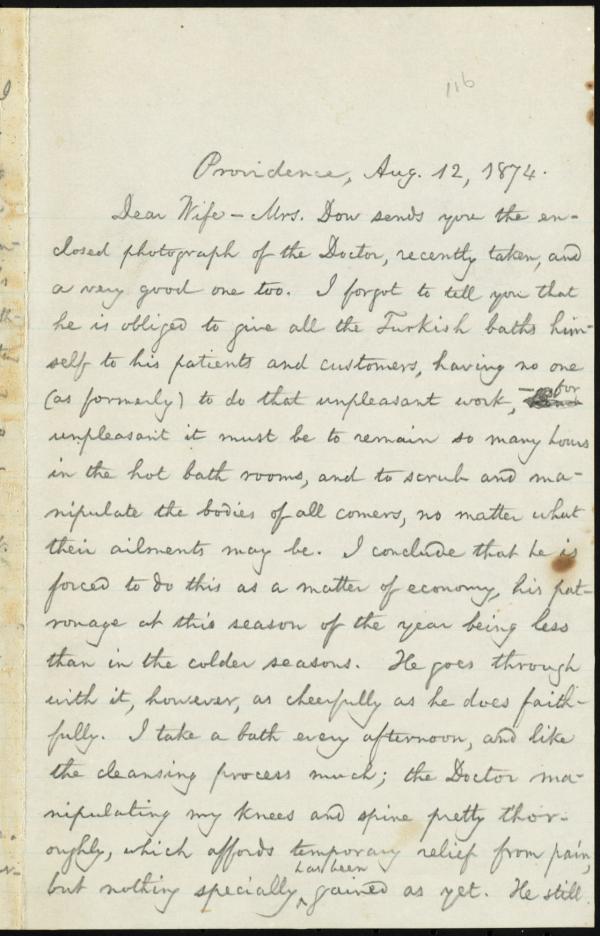 116
Providence, Aug. 12, 1874.
Dear Wife – Mrs. Dow sends you the en-
closed photograph of the Doctor, recently taken, and
a very good one too. I forgot to tell you that
he is obliged to give all the Turkish baths him-
self to his patients and customers, having no one
(as formerly) to do that unpleasant work, – for
unpleasant it must be to remain so many hours
in the hot bath rooms, and to scrub and ma-
nipulate the bodies of all comers, no matter what
their ailments may be. I conclude that he is
forced to do this as a matter of economy, his pat-
ronage at this season of the year being less
than in the colder seasons. He goes through
with it, however, as cheerfully as he does faith-
fully. I take a bath every afternoon, and like
the cleansing process much; the Doctor ma-
nipulating my knees and spine pretty thor-
oughly, which affords temporary relief from pain,
but nothing specially has been gained as yet. He still